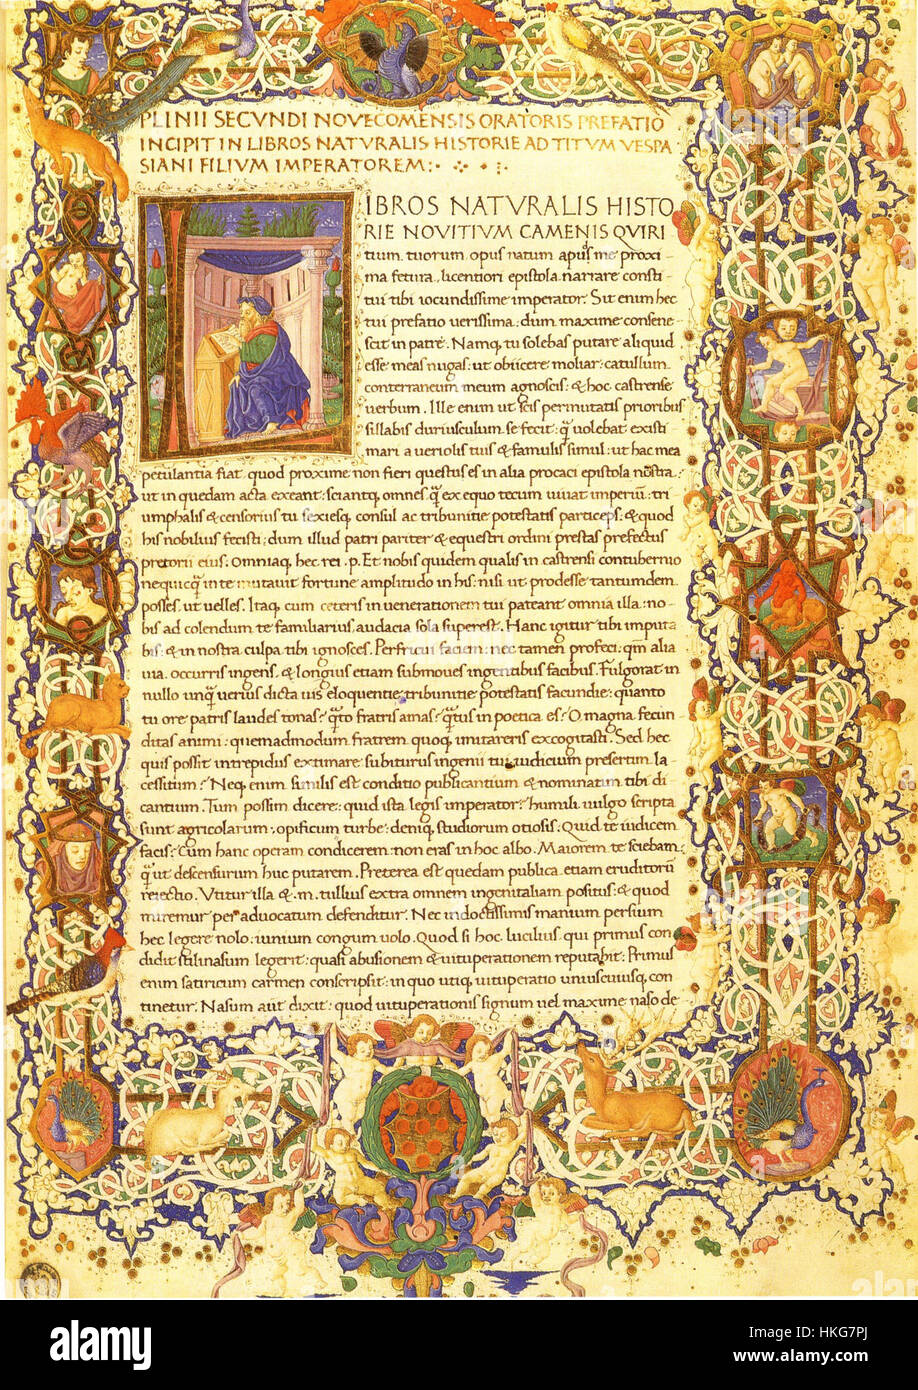 PLINII SECVNDI NOVECOMENSIS ORATORIS PREFATIO
INCIPIT IN LIBROS NATVRALIS HISTORIE AD TITVM VESPA
SIANI FILIVM IMPERATOREM:
LIBROS NATVRALIS HISTO
RIE NOVITIVM CAMENIS QVIRI
tium tuorum opus natum apud me proxi
ma fetura, licentiori epistola narrare consti
tui tibi iocundissime imperator. Sit enim hec
tui prefatio verissima: dum maximo consene
scit in patre. Namq, tu solebas putare aliquid
esse meas nugas: ut obiicere moliar catullum
conterraneum meum agnoscis: & hoc castrense
verbum. Ille enim ut scis permutatis prioribus
sillabis duriusculum se fecit: q̃ volebat existi
mari a veriolis tuis & famulis simul: ut hac mea
petulantia fiat quod proxime non fieri questus es in alia procaci epistola nr̃a:
ut in quedam acta exeant: sciantq, omnes q̃ ex equo tecum vivat imperiũ: tri
umphalis & censorius tu sexiesq, consul ac tribunitie potestatis particeps: & quod
his nobilius fecisti: dum illud patri pariter & equestri ordini prestas prefectus
pretorii eius: Omniaq, hec rei .p. Et nobis quidem qualis in castrensi contubernio
nequicq̃ in te mutavit fortune amplitudo in his: nisi ut prodesse tantumdem
posses, ut velles. Itaq, cum ceteris in venerationem tui pateant omnia illa: no
bis ad colendum te familiarius, audacia sola superest. Hanc igitur tibi imputa
bis: & in nostra culpa tibi ignosces. Perfricui faciem: nec tamen profeci: qm̃ alia
via, occurris ingens, & longius etiam submoues ingentibus facibus. Fulgorat in
nullo unq̃ verius dicta vis eloquentie, tribunitie potestatis facundie: quanto
tu ore patris laudes tonas? q̃to fratris amas? q̃tus in poetica es? O magna fecun
ditas animi: quemadmodum fratrem quoq, imitareris excogitasti. Sed hec
quis possit intrepidus extimare subiturus ingenii tui iudicium presertim la
cessitum? Neq, enim similis est conditio publicantium & nominatim tibi di
cantium. Tum possim dicere: quid ista legis imperator? humili vulgo scripta
sunt agricolarum, opificum turbe: deniq, studiorum otiosis: Quid te iudicem
facis? Cum hanc operam condicerem non eras in hoc albo. Maiorem te sciebam
q̃ ut descensurum huc putarem. Preterea est quedam publica, etiam eruditorũ
reiectio. Vtitur illa & .m. tullius extra omnem ingenii aliam positus: & quod
miremur per advocatum defenditur. Nec indoctissimis manium persium
hec legere nolo, iunium congum volo. Quod si hoc lucilius, qui primus con
didit stili nasum legerit: quasi abusionem & vituperationem reputabit: Primus
enim satiricum carmen conscripsit: in quo utiq, vituperatio uniuscuiusq, con
tinetur. Nasum aut dixit: quod vituperationis signum vel maxime naso de
alamy
Image ID: HKG7PJ
www.alamy.com